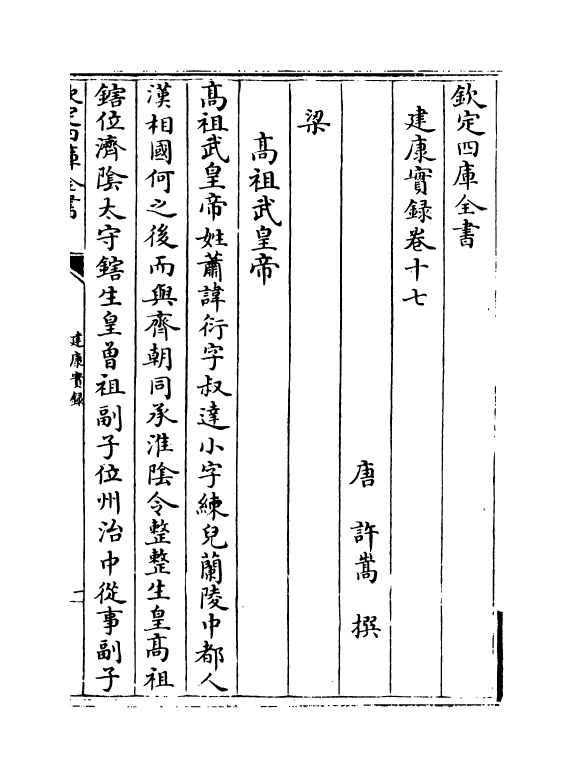 欽定四庫全書
建康實録卷十七
唐　許嵩　撰
梁
高祖武皇帝
髙祖武皇帝姓蕭諱衍字叔達小字練兒蘭陵中都人
漢相國何之後而與齊朝同承淮隂令整整生皇髙祖
鎋位濟隂太守鎋生皇曾祖副子位州治中從事副子
欽定四庫全書
建康實録
一